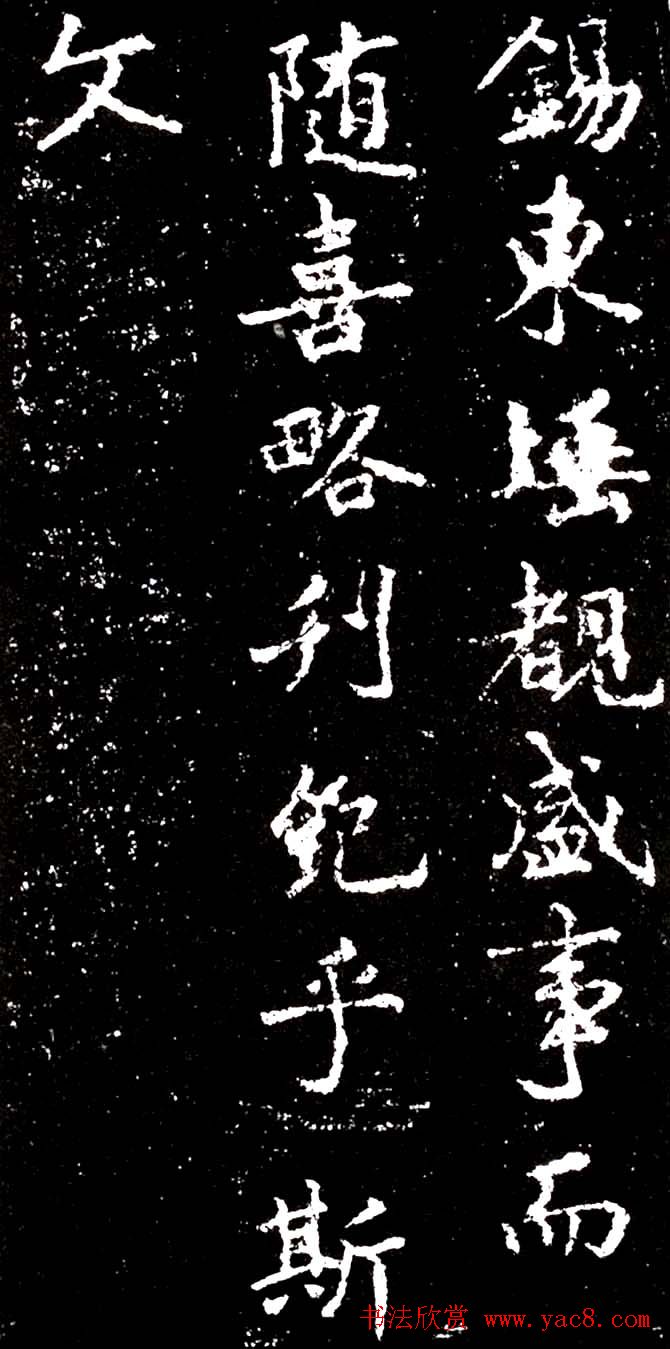 錫東垂覩盛事而
随喜略刋紀乎斯
文
书法欣赏 www.yac8.com